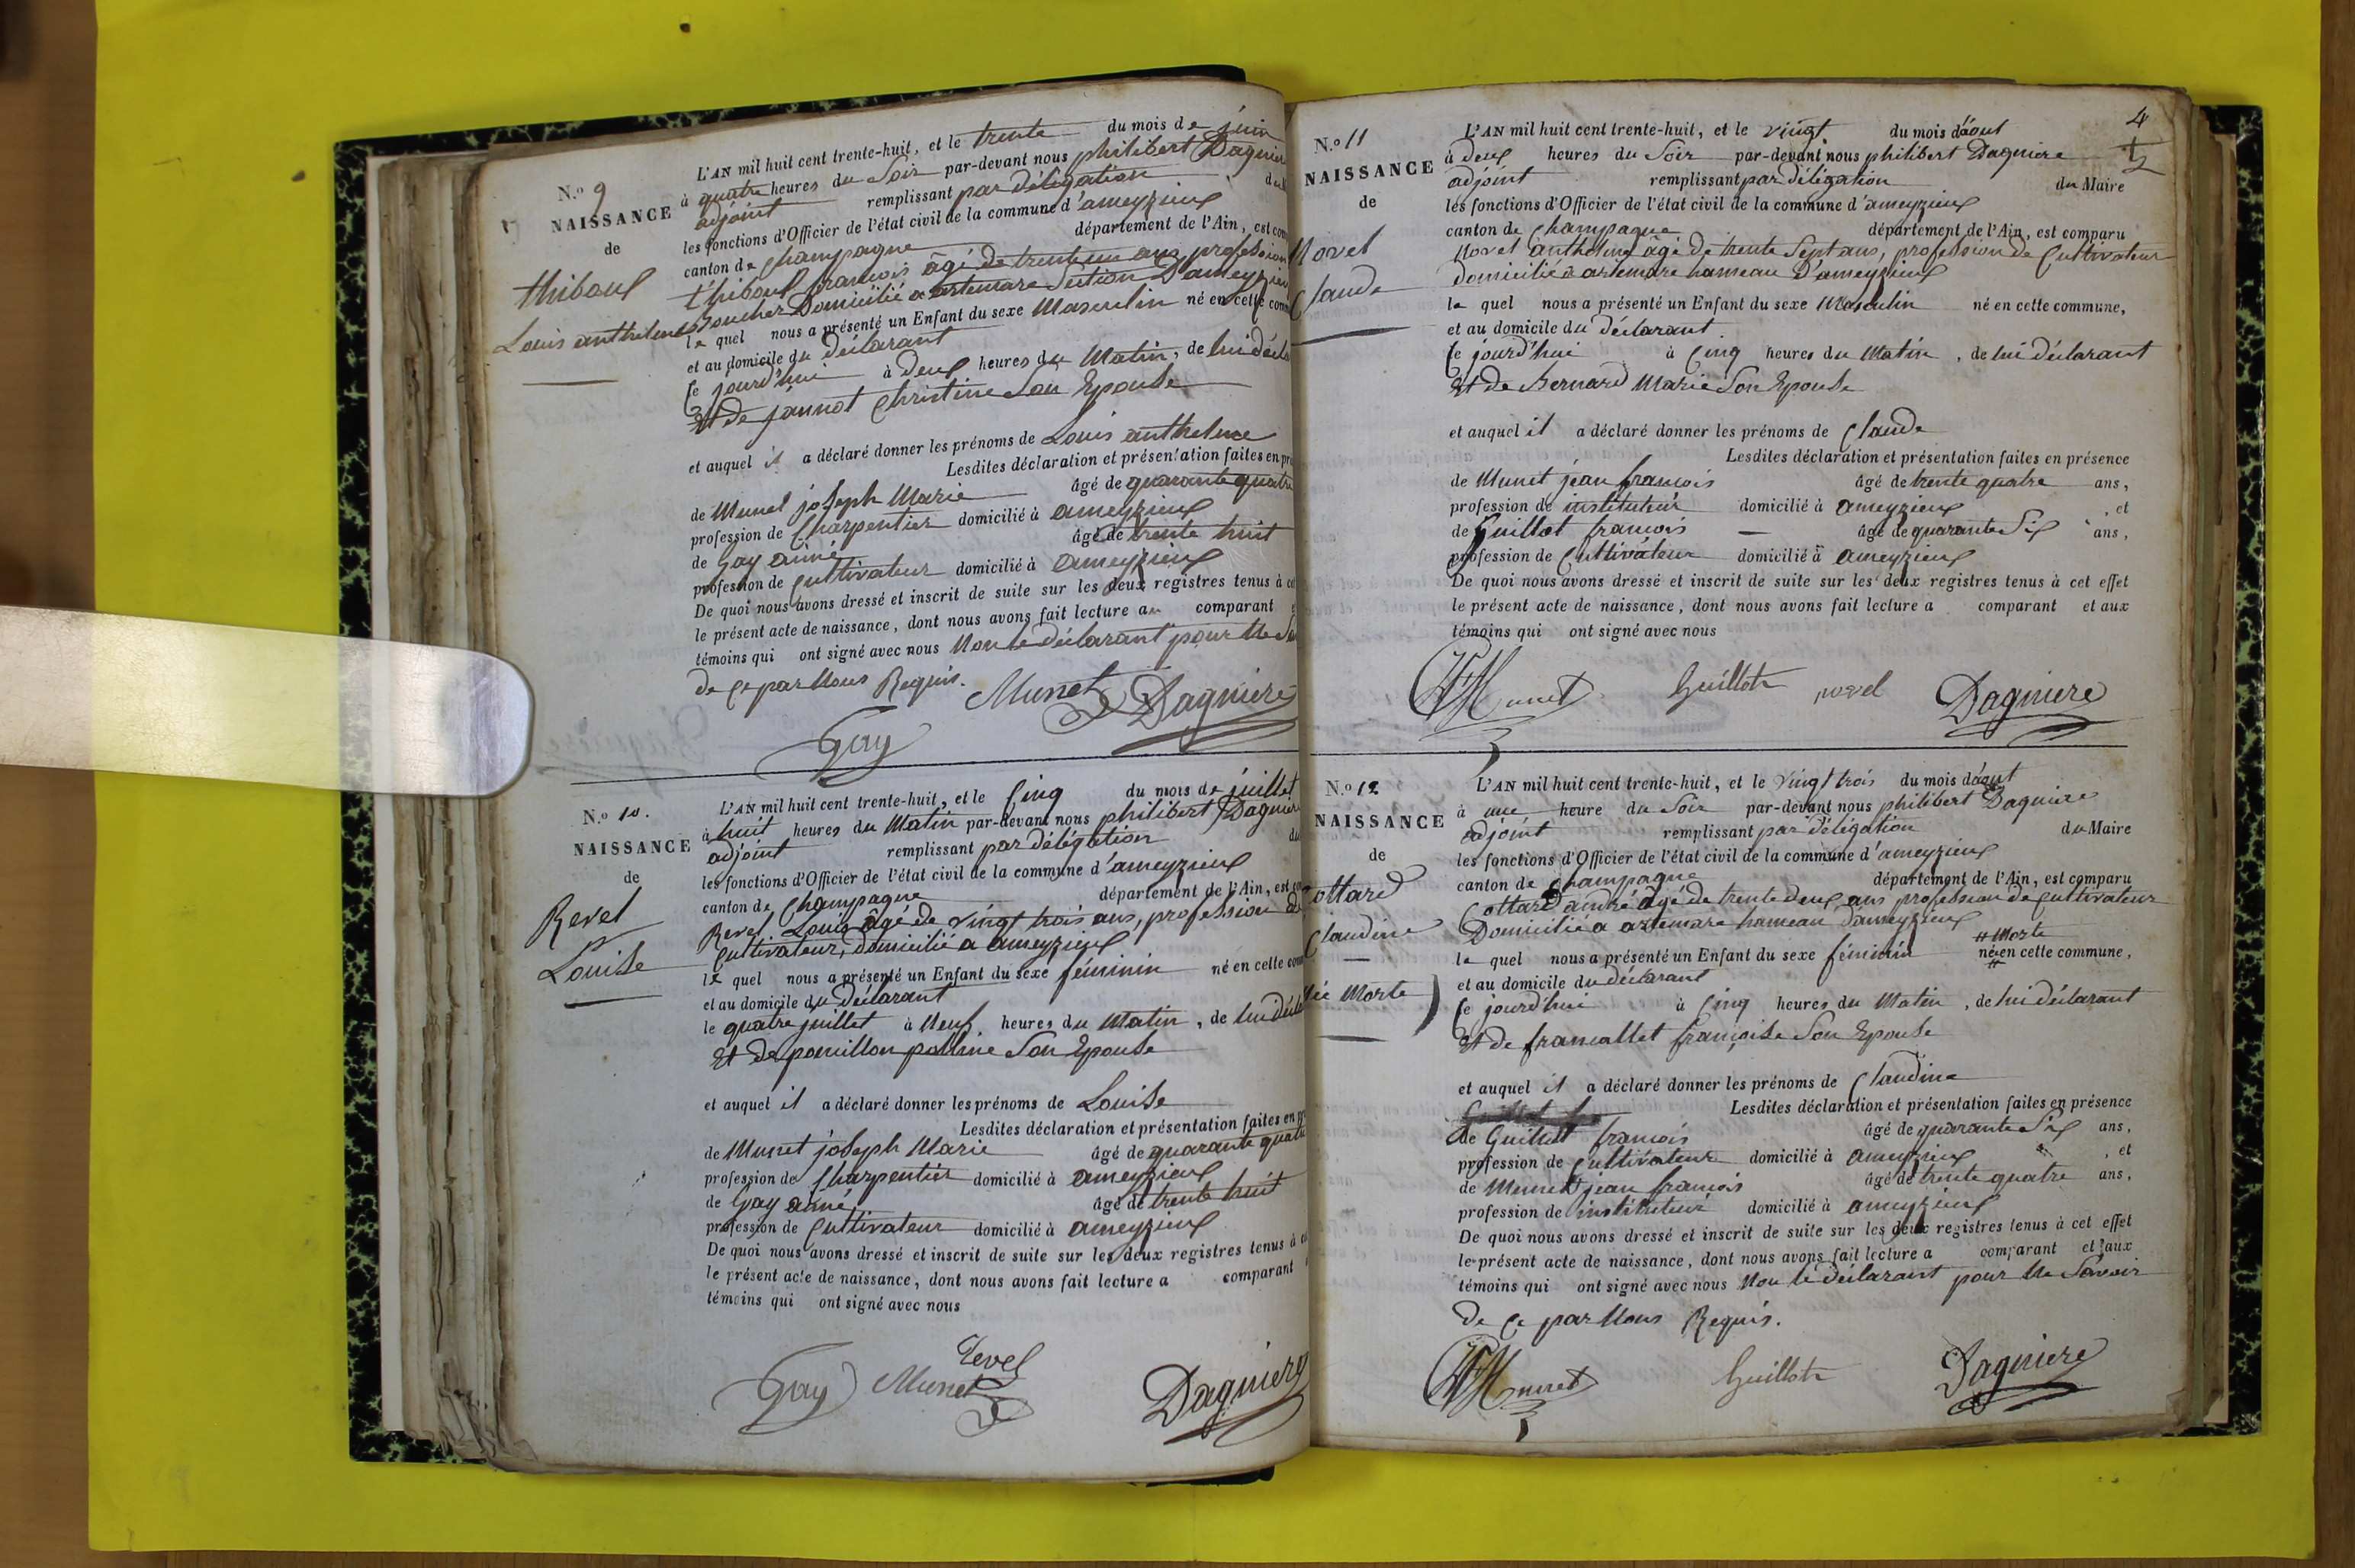 N.o 9
NAISSANCE
de
thiboul
Louis anthelme
L'AN mil huit cent trente-huit, et le trente du mois de juin
à quatre heures du Soir par-devant nous philibert Dagniere
adjoint remplissant par délégation du
les fonctions d'Officier de l'état civil de la commune d'ameyzieux
canton de Champagne département de l'Ain, est com
thiboul francois âgé de trente un ans profession
Domicilié a artemare Section D'ameyzieu
le quel nous a présenté un Enfant du sexe Masculin né en cette com
et au domicile du déclarant
Ce jourd'hui à deux heures du Matin, de lui décla
Et de jannot Christine Son Epouse
et auquel il a déclaré donner les prénoms de Louis anthelme
Lesdites déclaration et présentation faites en pr
de Munet joseph Marie âgé de quarante quatre
profession de Charpentier domicilié à ameyzieux
de Gay aimé âgé de trente huit
profession de Cultivateur domicilié à ameyzieux
De quoi nous avons dressé et inscrit de suite sur les deux registres tenus à ce
le présent acte de naissance, dont nous avons fait lecture au comparant
témoins qui ont signé avec nous Non le déclarant pour Ne S
de Ce par Nous Requis.
Munet Dagniere
Gay
N.o 10.
NAISSANCE
de
Revel
Louise
L'AN mil huit cent trente-huit, et le Cinq du mois de juillet
à huit heures du Matin par-devant nous philibert Dagniere
adjoint remplissant par délégation du
les fonctions d'Officier de l'état civil de la commune d'ameyzieux
canton de Champagne département de l'Ain, est co
Revel Louis âgé de vingt trois ans, profession de
Cultivateur, domicilié a ameyzieux
le quel nous a présenté un Enfant du sexe féminin né en cette com
et au domicile du Déclarant
le quatre juillet à Neuf heures du Matin, de lui décla
Et de Son Epouse
et auquel il a déclaré donner les prénoms de Louise
Lesdites déclaration et présentation faites en pr
de Munet joseph Marie âgé de quarante quatre
profession de Charpentier domicilié à ameyzieux
de Gay aimé âgé de trente huit
profession de Cultivateur domicilié à ameyzieux
De quoi nous avons dressé et inscrit de suite sur les deux registres tenus à ce
le présent acte de naissance, dont nous avons fait lecture a comparant
témoins qui ont signé avec nous
revel
Gay Munet Dagniere
4
N.o 11
NAISSANCE
de
Novel
Claude
L'AN mil huit cent trente-huit, et le vingt du mois d'aout
à deux heures du Soir par-devant nous philibert Dagniere
adjoint remplissant par délégation du Maire
les fonctions d'Officier de l'état civil de la commune d'ameyzieux
canton de Champagne département de l'Ain, est comparu
Novel anthelme âgé de trente Sept ans, profession de Cultivateur
domicilié a artemare hameau D'ameyzieux
le quel nous a présenté un Enfant du sexe Masculin né en cette commune,
et au domicile du déclarant
Ce jourd'hui à Cinq heures du Matin, de lui déclarant
Et de Bernard Marie Son Epouse
et auquel il a déclaré donner les prénoms de Claude
Lesdites déclaration et présentation faites en présence
de Munet jean francois âgé de trente quatre ans,
profession de instituteur domicilié à ameyzieux, et
de Guillot francois âgé de quarante Six ans,
profession de Cultivateur domicilié à ameyzieux
De quoi nous avons dressé et inscrit de suite sur les deux registres tenus à cet effet
le présent acte de naissance, dont nous avons fait lecture a comparant et aux
témoins qui ont signé avec nous
Munet Guillot novel Dagniere
N.o 12
NAISSANCE
de
Cottard
Claudine
Née Morte
L'AN mil huit cent trente-huit, et le vingt trois du mois d'aout
à une heure du Soir par-devant nous philibert Dagniere
adjoint remplissant par délégation du Maire
les fonctions d'Officier de l'état civil de la commune d'ameyzieux
canton de Champagne département de l'Ain, est comparu
Cottard andré âgé de trente deux ans profession de Cultivateur
Domicilié a artemare hameau D'ameyzieux
# Morte
le quel nous a présenté un Enfant du sexe féminin né # en cette commune,
et au domicile du déclarant
Ce jourd'hui à Cinq heures du Matin, de lui déclarant
Et de francallet françoise Son Epouse
et auquel il a déclaré donner les prénoms de Claudine
Lesdites déclaration et présentation faites en présence
de Guillot francois âgé de quarante Six ans,
profession de Cultivateur domicilié à ameyzieux, et
de Munet jean francois âgé de trente quatre ans,
profession de instituteur domicilié à ameyzieux
De quoi nous avons dressé et inscrit de suite sur les deux registres tenus à cet effet
le présent acte de naissance, dont nous avons fait lecture a comparant et aux
témoins qui ont signé avec nous Non le déclarant pour Ne Savoir
de Ce par Nous Requis.
Munet Guillot Dagniere